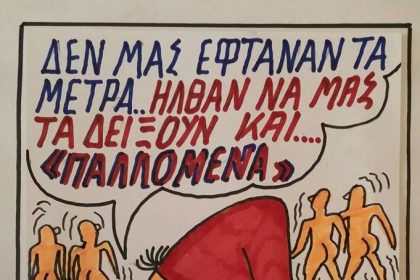 ΔΕΝ ΜΑΣ ΕΦΤΑΝΑΝ ΤΑ
ΜΕΤΡΑ..ΗΛΘΑΝ ΝΑ ΜΑΣ
ΤΑ ΔΕΙΞΟΥΝ ΚΑΙ....
«ΠΑΛΛΟΜΕΝΑ»